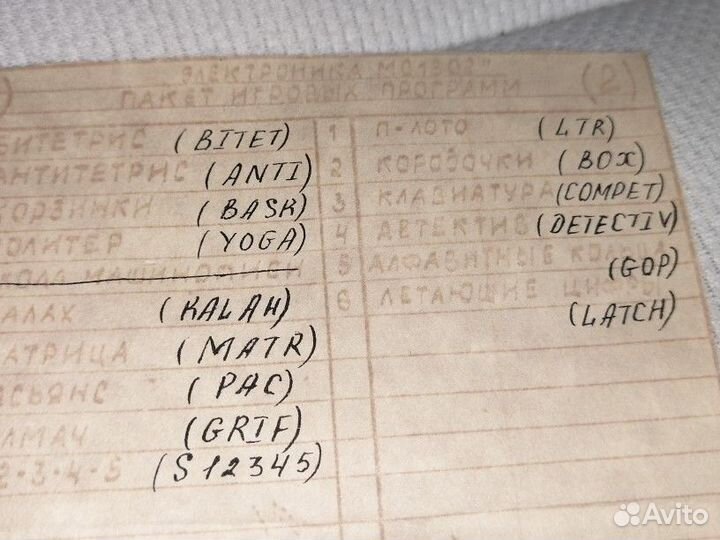 ЭЛЕКТРОНИКА МС1502"
ПАКЕТ ИГРОВЫХ ПРОГРАММ (2)
БИТЕТРИС (BITET)
АНТИТЕТРИС (ANTI)
ОРЗИНКИ (BASK)
ОЛИТЕР (YOGA)
КОЛА МАШИНОПИСИ
АЛАХ (KALAH)
АТРИЦА (MATR)
АСЬЯНС (PAC)
ЛМАЧ (GRIF)
2-3-4-5 (S12345)
1 П-ЛОТО (LTR)
2 КОРОБОЧКИ (BOX)
3 КЛАВИАТУРА (COMPET)
4 ДЕТЕКТИВ (DETECTIV)
5 АЛФАВИТНЫЕ КОЛЬЦА (GOP)
6 ЛЕТАЮЩИЕ ЦИФРЫ (LATCH)
Avito